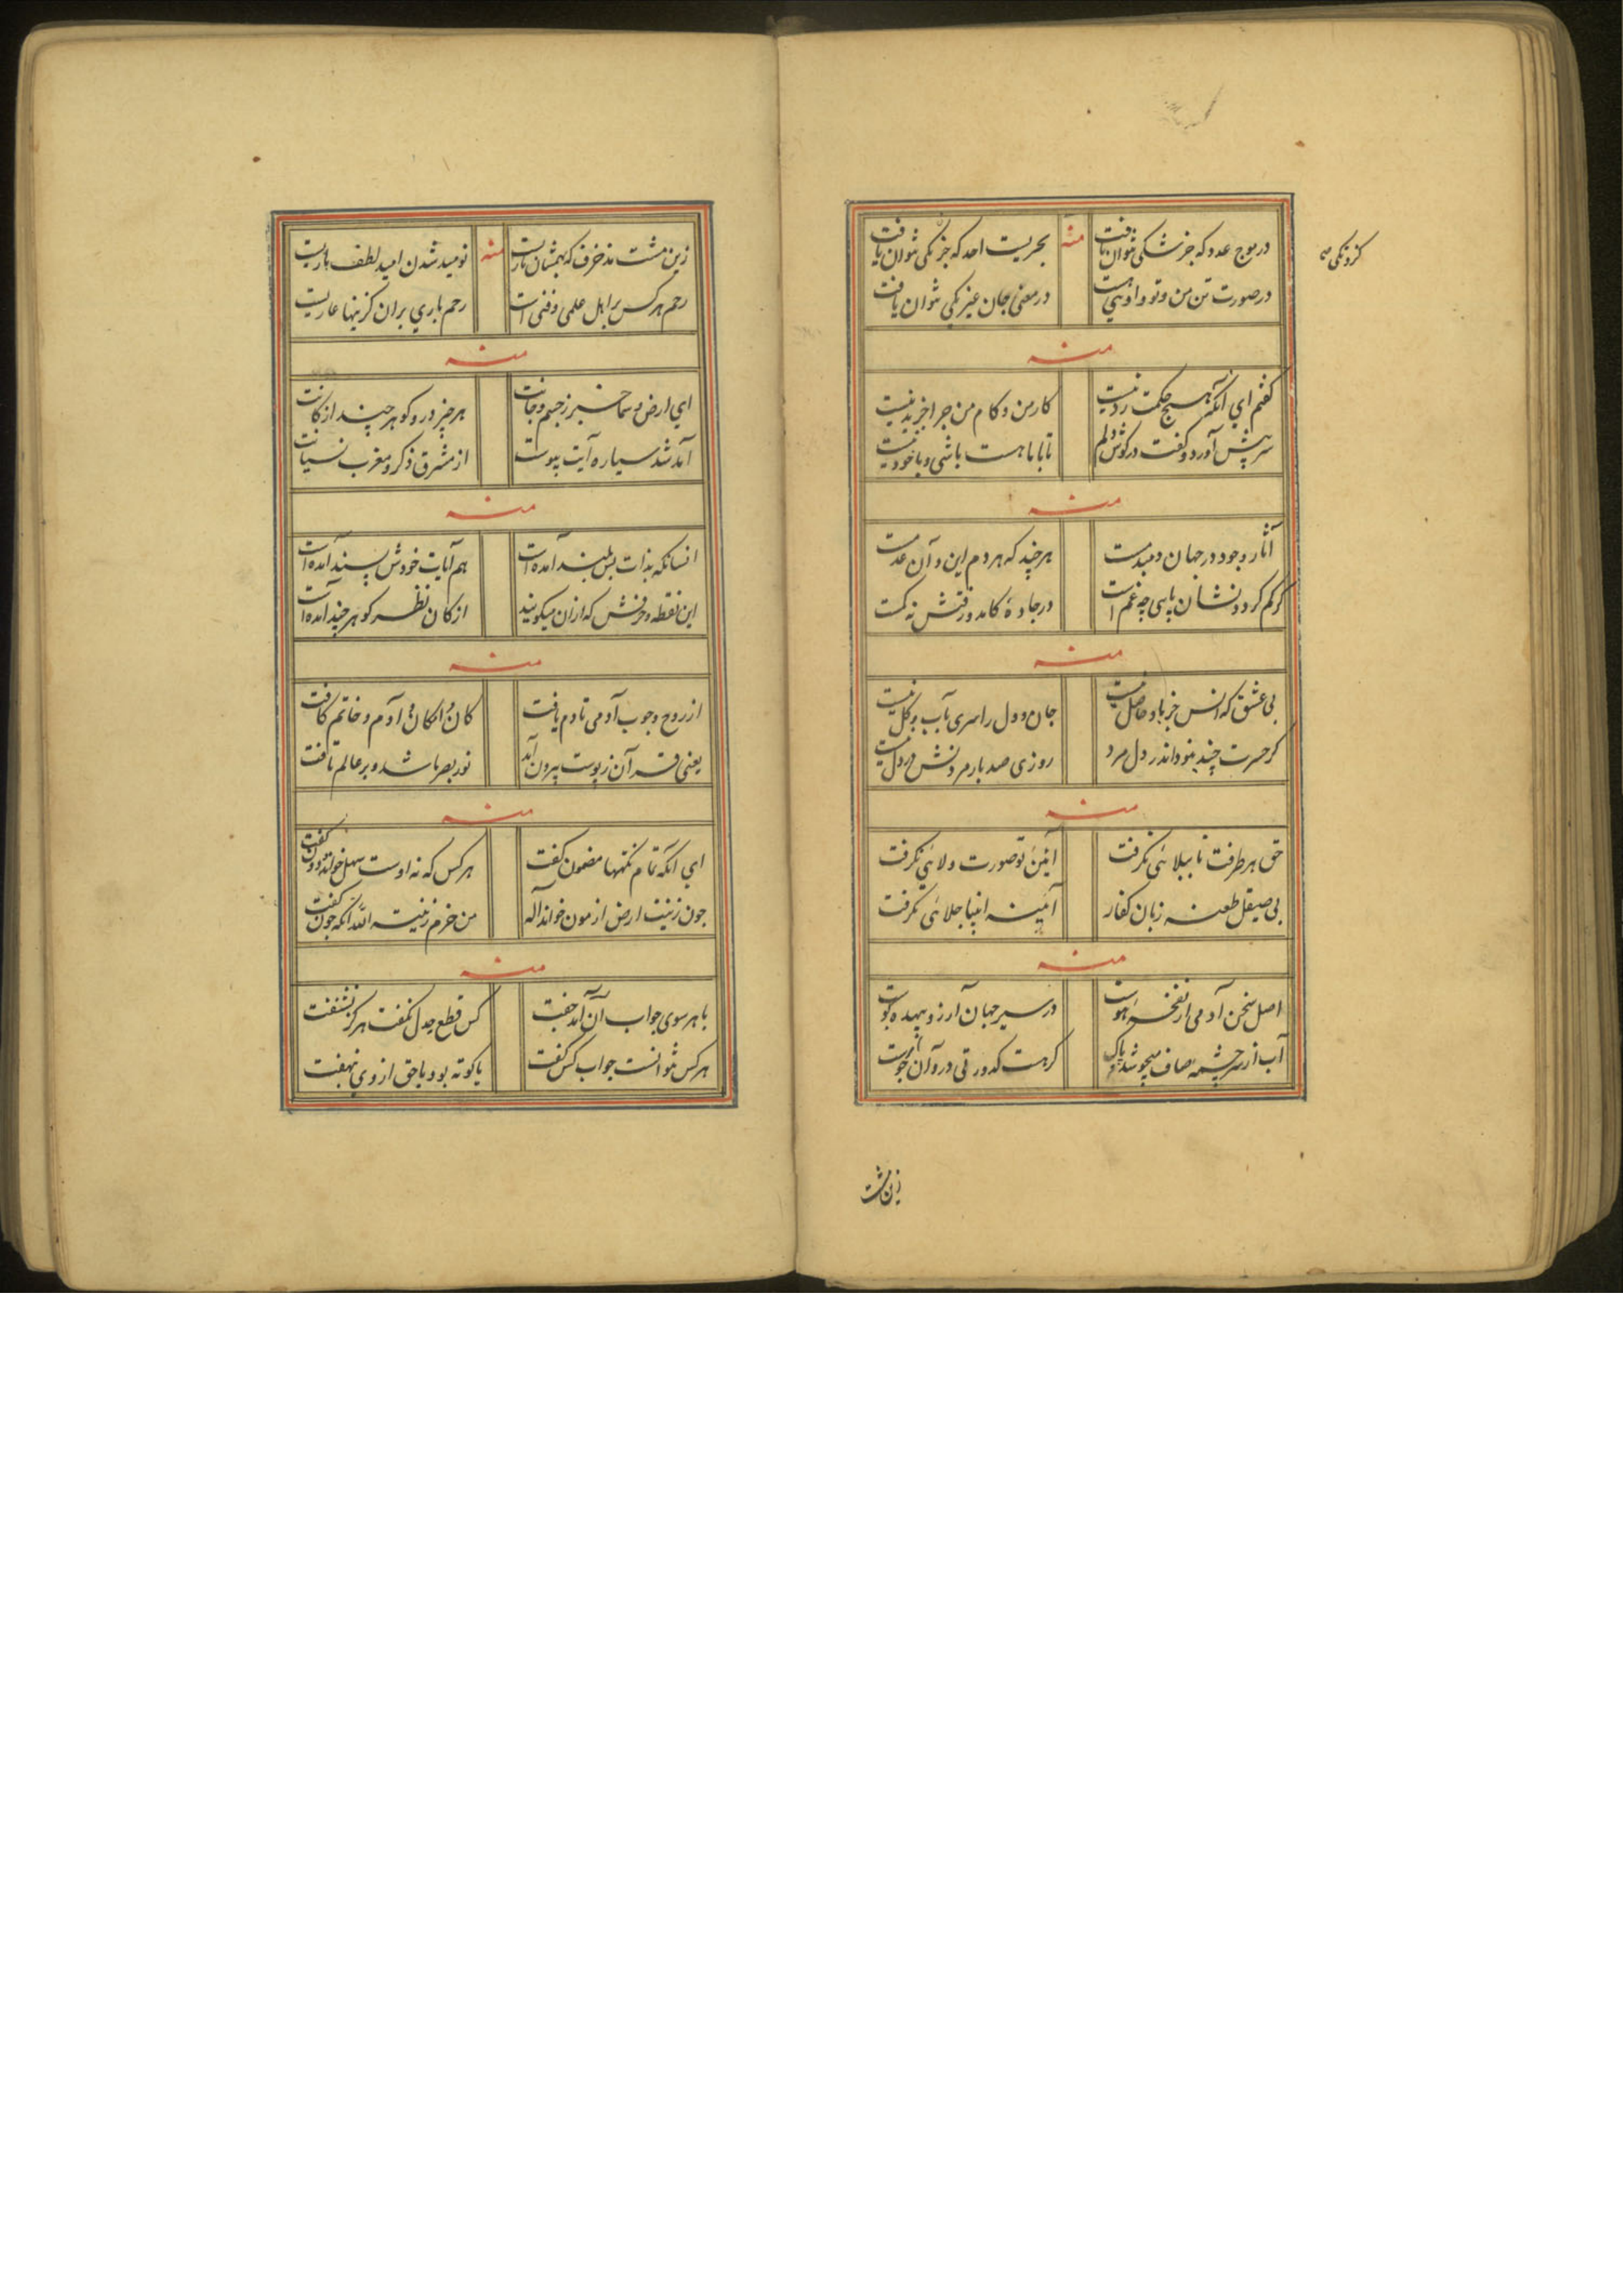 در موج عدد که جز شکی نتوان یافت منه بحریست احد که جز یکی نتوان یافت
در صورت تن من و تو و اویی هست در معنی جان غیر یکی نتوان یافت
منه
گفتم ای آنکه هیچ حکمت رد نیست کار من و کام من چرا جز بد نیست
سر پیش آورد و گفت در گوش دلم تا با ما هست باشی و با خود نیست
منه
آثار وجود در جهان دمبدمست هر چند که هر دم این و آن عدمست
گر کم گردد نشان پایی چه غم است در جاده کامد و رفتش نه کمست
منه
بی عشق که انس جز باو حاصل نیست جان و دل را سری بآب و گل نیست
گر حسرت چند بنود اندر دل مرد روزی صد بار مردنش در دل نیست
منه
حق هر طرفت تا ببلائی نگرفت آیین تو صورت ولائی نگرفت
بی صیقل طعنه زبان کفار آئینه انبیا جلائی نگرفت
منه
اصل سخن آدمی از نفخه هوست در سیر جهان آرزو بیهده گوست
آب از سر چشمه صاف میجوشد و پاک گر هست کدورتی در و آن از جوست
زین مشت
زین مشت مزخرف که بهمشان یاریست منه نومید شدن امید لطف باریست
رحم هر کس بر اهل علمی و فنی است رحم باری بر آن کزینها عاریست
منه
ای ارض و سما خبر ز جسم و جانت هر چیز درو گوهر چند از کانت
آمد شد سیاره آیت پیوست از مشرق ذکر و مغرب نسیانت
منه
انسانکه بذات بس بلند آمده است هم آیات خودش پسند آمده است
این نقطه و حرفش که ازان میگویند از کان نظر گوهر چند آمده است
منه
از روح وجوب آدمی تا دم یافت کان و امکان و آدم و خاتم یافت
یعنی قرآن ز پوست بیرون آمد نور بصر ما شد و بر عالم تافت
منه
ای آنکه تمام نکتهها مضمون گفت هر کس که نه اوست سهل خواند و دون گفت
چون زینت ارض از مون خواند آله من خرم زینة الله آنکه چون گفت
منه
با هر سوی جواب آن آمد جفت کس قطع جدل نگفت هرگز نشنفت
هر کس نتوانست جواب کس گفت یا کوته بود یا حق از وی نهفت